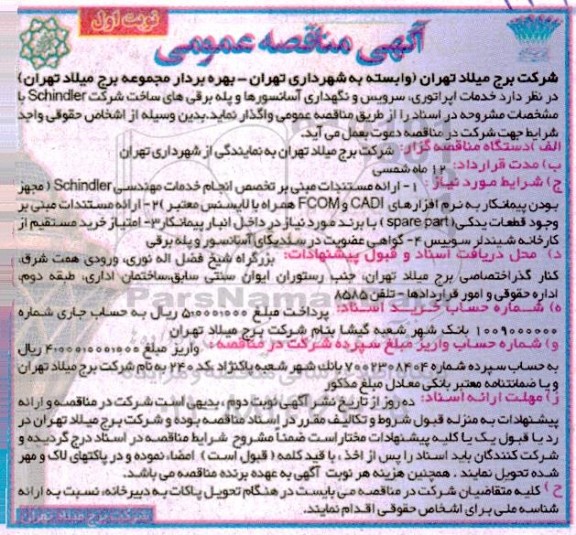 نوبت اول
آگهی مناقصه عمومی
شرکت برج میلاد تهران (وابسته به شهرداری تهران - بهره بردار مجموعه برج میلاد تهران)
در نظر دارد خدمات اپراتوری، سرویس و نگهداری آسانسورها و پله برقی های ساخت شرکت Schindler با
مشخصات مشروحه در اسناد را از طریق مناقصه عمومی واگذار نماید. بدین وسیله از اشخاص حقوقی واجد
شرایط جهت شرکت در مناقصه دعوت بعمل می آید.
الف) دستگاه مناقصه گزار: شرکت برج میلاد تهران به نمایندگی از شهرداری تهران
ب) مدت قرارداد: ۱۲ ماه شمسی
ج) شرایط مورد نیاز: ۱- ارائه مستندات مبنی بر تخصص انجام خدمات مهندسی Schindler ( مجهز
بودن پیمانکار به نرم افزارهای CADI و FCOM همراه با لایسنس معتبر ) ۲- ارائه مستندات مبنی بر
وجود قطعات یدکی( spare part ) با برند مورد نیاز در داخل انبار پیمانکار ۳- امتیاز خرید مستقیم از
کارخانه شیندلر سوییس ۴- گواهی عضویت در سندیکای آسانسور و پله برقی
د) محل دریافت اسناد و قبول پیشنهادات: بزرگراه شیخ فضل اله نوری، ورودی همت شرق،
کنار گذر اختصاصی برج میلاد تهران، جنب رستوران ایوان سنتی سابق،ساختمان اداری، طبقه دوم،
اداره حقوقی و امور قراردادها - تلفن ۸۵۸۵
ه) شماره حساب خرید اسناد: پرداخت مبلغ ۵/۰۰۰/۰۰۰ ریال به حساب جاری شماره
۱۰۰۹۰۰۰۰۰۰ بانک شهر شعبه گیشا بنام شرکت برج میلاد تهران
و) شماره حساب واریز مبلغ سپرده شرکت در مناقصه : واریز مبلغ ۴/۰۰۰/۰۰۰/۰۰۰ ریال
به حساب سپرده شماره ۷۰۰۲۳۰۸۴۰۴ بانک شهر شعبه پاکنژاد کد ۲۴۰ به نام شرکت برج میلاد تهران
و یا ضمانتنامه معتبر بانکی معادل مبلغ مذکور
ز) مهلت ارائه اسناد: ده روز از تاریخ نشر آگهی نوبت دوم ، بدیهی است شرکت در مناقصه و ارائه
پیشنهادات به منزله قبول شروط و تکالیف مقرر در اسناد مناقصه بوده و شرکت برج میلاد تهران در
رد یا قبول یک یا کلیه پیشنهادات مختار است ضمناً مشروح شرایط مناقصه در اسناد درج گردیده و
شرکت کنندگان باید اسناد را پس از اخذ ، با قید کلمه ( قبول است ) امضاء نموده و در پاکتهای لاک و مهر
شده تحویل نمایند ، همچنین هزینه هر نوبت آگهی به عهده برنده مناقصه می باشد.
ح) کلیه متقاضیان شرکت در مناقصه می بایست در هنگام تحویل پاکات به دبیرخانه، نسبت به ارائه
شناسه ملی برای اشخاص حقوقی اقدام نمایند.
شرکت برج میلاد تهران